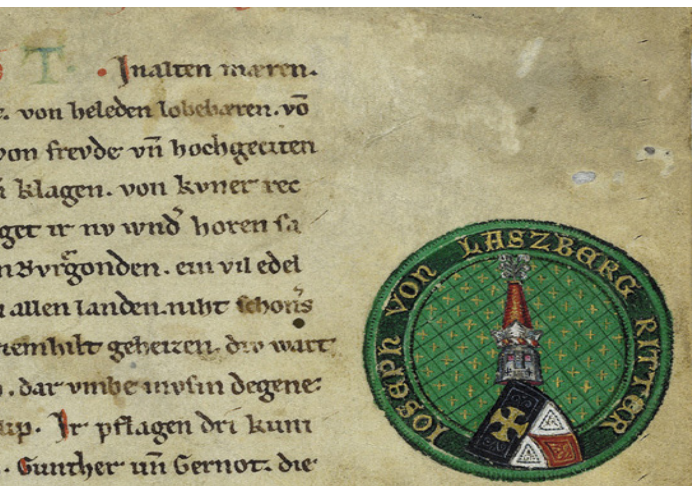 T. Jnalten mæren.
von heleden lobebæren. võ
von frevde vñ hochgeciten
klagen. von kvner rec
get ir nv wnd᷑ horen ſa
Bvrgonden. ein vil edel
allen landen. niht ſchoñs
riemhilt geheizen. div wart
dar vmbe mvſin degene
Jr pflagen dri kuni
Gunther vñ Gernot. die
JOSEPH VON LASZBERG RITTER